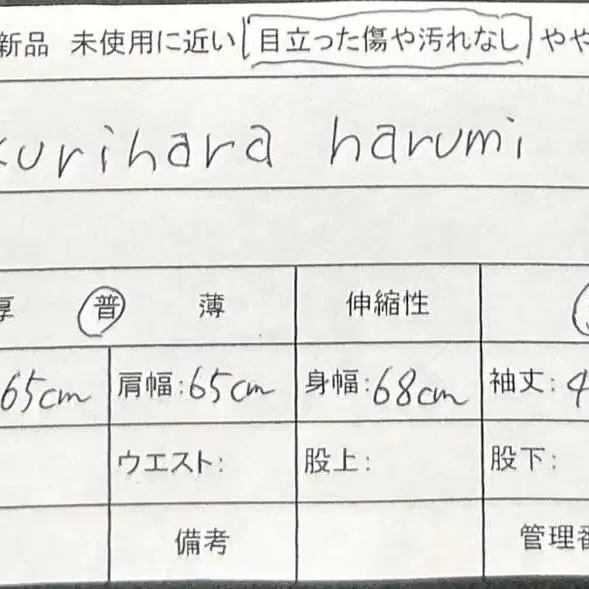 新品 未使用に近い 目立った傷や汚れなし やや
kurihara harumi
厚 普 薄 伸縮性
65cm 肩幅:65cm 身幅:68cm 袖丈:4
ウエスト: 股上: 股下:
備考 管理番